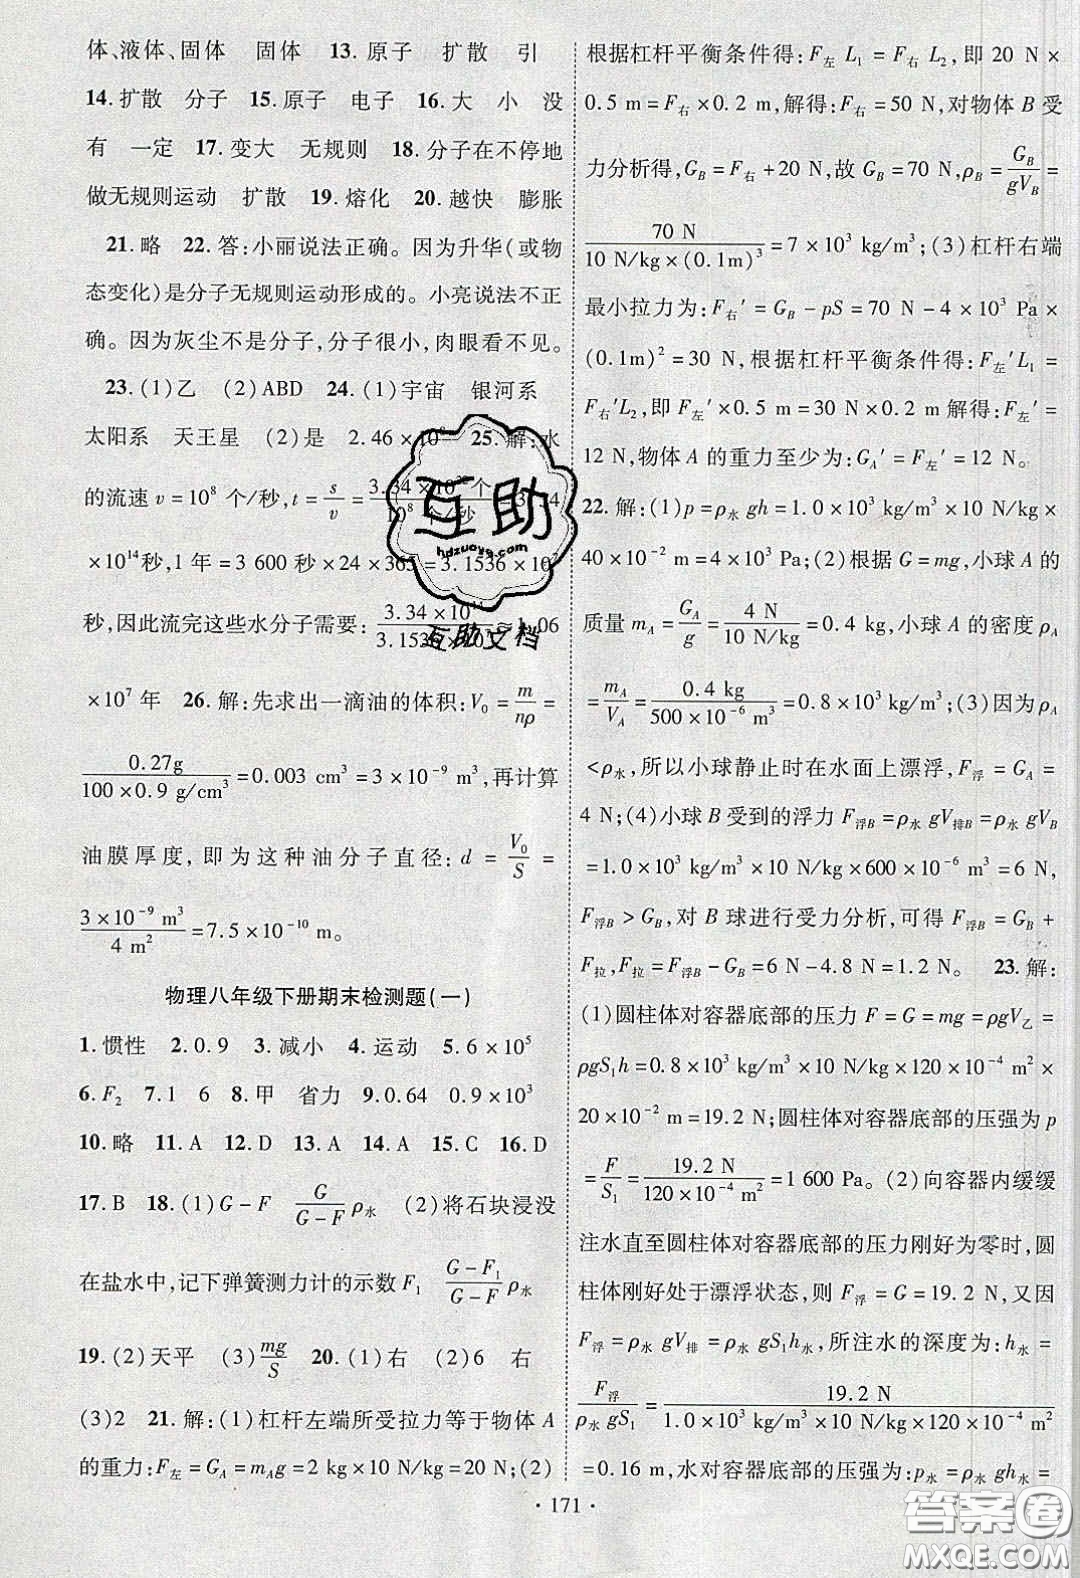 体、液体、固体　固体　13.原子　扩散　引
14.扩散　分子　15.原子　电子　16.大　小　没
有　一定　17.变大　无规则　18.分子在不停地
做无规则运动　扩散　19.熔化　20.越快　膨胀
21.略　22.答:小丽说法正确。因为升华(或物
态变化)是分子无规则运动形成的。小亮说法不正
确。因为灰尘不是分子,分子很小,肉眼看不见。
23.(1)乙　(2)ABD　24.(1)宇宙　银河系
太阳系　天王星　(2)是　2.46×10　25.解:水
的流速 v=10⁸ 个/秒, t=s/v=3.34×10 个/10⁸ 个/秒=3.34
×10¹⁴秒, 1 年=3 600 秒×24×365=3.1536×10⁷
秒,因此流完这些水分子需要:3.34×10¹⁴/3.1536×10⁷≈1.06
×10⁷ 年　26.解:先求出一滴油的体积:V₀=m/nρ=
0.27g/(100×0.9 g/cm³)=0.003 cm³=3×10⁻⁹ m³,再计算
油膜厚度,即为这种油分子直径:d=V₀/S=
3×10⁻⁹ m³/4 m²=7.5×10⁻¹⁰ m。
物理八年级下册期末检测题(一)
1.惯性　2.0.9　3.减小　4.运动　5.6×10⁵
6.F₂　7.1　6　8.甲　省力　9.0.64　0.9×10³
10.略　11.A　12.D　13.A　14.A　15.C　16.D
17.B　18.(1)G-F　G/(G-F)ρ水　(2)将石块浸没
在盐水中,记下弹簧测力计的示数 F₁　(G-F₁)/(G-F)ρ水
19.(2)天平　(3)mg/S　20.(1)右　(2)6　右
(3)2　21.解:(1)杠杆左端所受拉力等于物体 A
的重力:F左=G_A=m_Ag=2 kg×10 N/kg=20 N;(2)
根据杠杆平衡条件得:F左 L₁=F右 L₂,即 20 N×
0.5 m=F右×0.2 m,解得:F右=50 N,对物体 B 受
力分析得,G_B=F右+20 N,故 G_B=70 N,ρ_B=G_B/gV_B=
70 N/(10 N/kg×(0.1m)³)=7×10³ kg/m³;(3)杠杆右端
最小拉力为:F右′=G_B-pS=70 N-4×10³ Pa×
(0.1m)²=30 N,根据杠杆平衡条件得:F左′L₁=
F右′L₂,即 F左′×0.5 m=30 N×0.2 m 解得:F左′=
12 N,物体 A 的重力至少为:G_A′=F左′=12 N。
22.解:(1)p=ρ水 gh=1.0×10³ kg/m³×10 N/kg×
40×10⁻² m=4×10³ Pa;(2)根据 G=mg,小球 A 的
质量 m_A=G_A/g=4 N/(10 N/kg)=0.4 kg,小球 A 的密度 ρ_A
=m_A/V_A=0.4 kg/(500×10⁻⁶ m³)=0.8×10³ kg/m³;(3)因为 ρ_A
<ρ水,所以小球静止时在水面上漂浮,F浮=G_A=
4 N;(4)小球 B 受到的浮力 F浮B=ρ水 gV排B=ρ水 gV_B
=1.0×10³ kg/m³×10 N/kg×600×10⁻⁶ m³=6 N,
F浮B>G_B,对 B 球进行受力分析,可得 F浮B=G_B+
F拉,F拉=F浮B-G_B=6 N-4.8 N=1.2 N。　23.解:
(1)圆柱体对容器底部的压力 F=G=mg=ρgV乙=
ρgS₁h=0.8×10³ kg/m³×10 N/kg×120×10⁻⁴ m²×
20×10⁻² m=19.2 N;圆柱体对容器底部的压强为 p
=F/S₁=19.2 N/(120×10⁻⁴ m²)=1 600 Pa。(2)向容器内缓缓
注水直至圆柱体对容器底部的压力刚好为零时,圆
柱体刚好处于漂浮状态,则 F浮=G=19.2 N,又因
F浮=ρ水 gV排=ρ水 gS₁h水,所注水的深度为:h水=
F浮/(ρ水 gS₁)=19.2 N/(1.0×10³ kg/m³×10 N/kg×120×10⁻⁴ m²)
=0.16 m,水对容器底部的压强为:p水=ρ水 gh水=
·171·
互助
hdzuoye.com
互助文档
答案圈
MXQE.COM